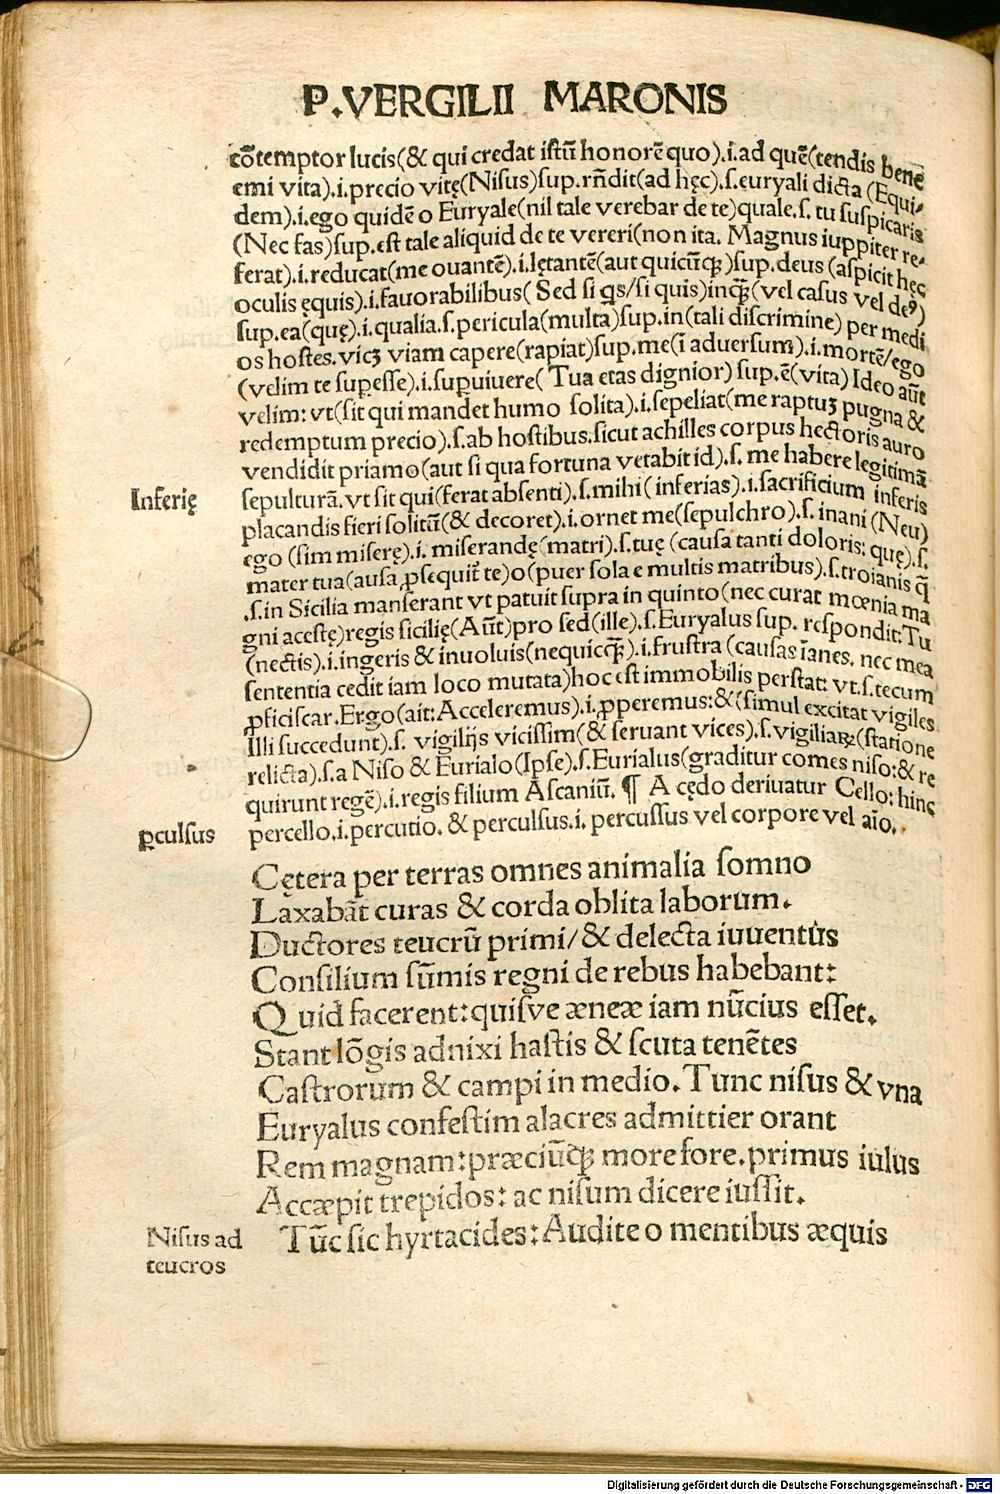 P.VERGILII MARONIS
cõtemptor lucis(& qui credat istũ honorẽ quo).i.ad quẽ(tendis bene
emi vita).i.precio vitę(Nisus)sup.rñdit(ad hęc).s.euryali dicta (Equi-
dem).i.ego quidẽ o Euryale(nil tale verebar de te)quale.s. tu suspicaris
(Nec fas)sup.est tale aliquid de te vereri(non ita. Magnus iuppiter re-
ferat).i.reducat(me ouantẽ).i.lętantẽ(aut quicũqꝫ)sup.deus (aspicit hęc
oculis ęquis).i.fauorabilibus( Sed si qs/si quis)inqꝫ(vel casus vel deꝰ)
sup.ea(quę).i.qualia.s.pericula(multa)sup.in(tali discrimine) per medi
os hostes.vicꝫ viam capere(rapiat)sup.me(ĩ aduersum).i.mortẽ/ego
(velim te suꝑesse).i.suꝑuiuere( Tua etas dignior) sup.ẽ(vita) Ideo aũt
velim: vt(sit qui mandet humo solita).i.sepeliat(me raptuꝫ pugna &
redemptum precio).s.ab hostibus.sicut achilles corpus hectoris auro
vendidit priamo(aut si qua fortuna vetabit id).s. me habere legitimã
Inferię
sepulturã. vt sit qui(ferat absenti).s.mihi( inferias).i.sacrificium inferis
placandis fieri solitũ(& decoret).i.ornet me(sepulchro).s. inani (Neu)
ego (sim miserę).i. miserandę(matri).s.tuę (causa tanti doloris: quę).s.
mater tua(ausa ꝓsequit᷑ te)o(puer sola e multis matribus).s.troianis q̃
.s.in Sicilia manserant vt patuit supra in quinto(nec curat mœnia ma
gni acestę)regis sicilię(Aũt)pro sed(ille).s.Euryalus sup. respondit:Tu
(nectis).i.ingeris & inuoluis(nequicqꝫ).i.frustra (causas ĩanes. nec mea
sententia cedit iam loco mutata)hoc est immobilis perstat: vt.s.tecum
ꝓficiscar.Ergo(ait:Acceleremus).i.ꝓperemus:&(simul excitat vigiles
Illi succedunt).s. vigilijs vicissim(& seruant vices).s.vigiliaꝝ(statione
relicta).s.a Niso & Eurialo(Ipse).s.Eurialus(graditur comes niso:& re
quirunt regẽ).i.regis filium Ascaniũ. ¶ A cędo deriuatur Cello: hinc
ꝑculsus
percello.i.percutio. & perculsus.i. percussus vel corpore vel aĩo.
Cętera per terras omnes animalia somno
Laxabãt curas & corda oblita laborum.
Ductores teucrũ primi/& delecta iuuentus
Consilium sũmis regni de rebus habebant:
Quid facerent:quisve æneæ iam nũcius esset.
Stant lõgis adnixi hastis & scuta tenẽtes
Castrorum & campi in medio.Tunc nisus & vna
Euryalus confestim alacres admittier orant
Rem magnam:præciũqꝫ more fore.primus iulus
Accæpit trepidos: ac nisum dicere iussit.
Nisus ad
teucros
Tũc sic hyrtacides:Audite o mentibus æquis
Digitalisierung gefördert durch die Deutsche Forschungsgemeinschaft - DFG